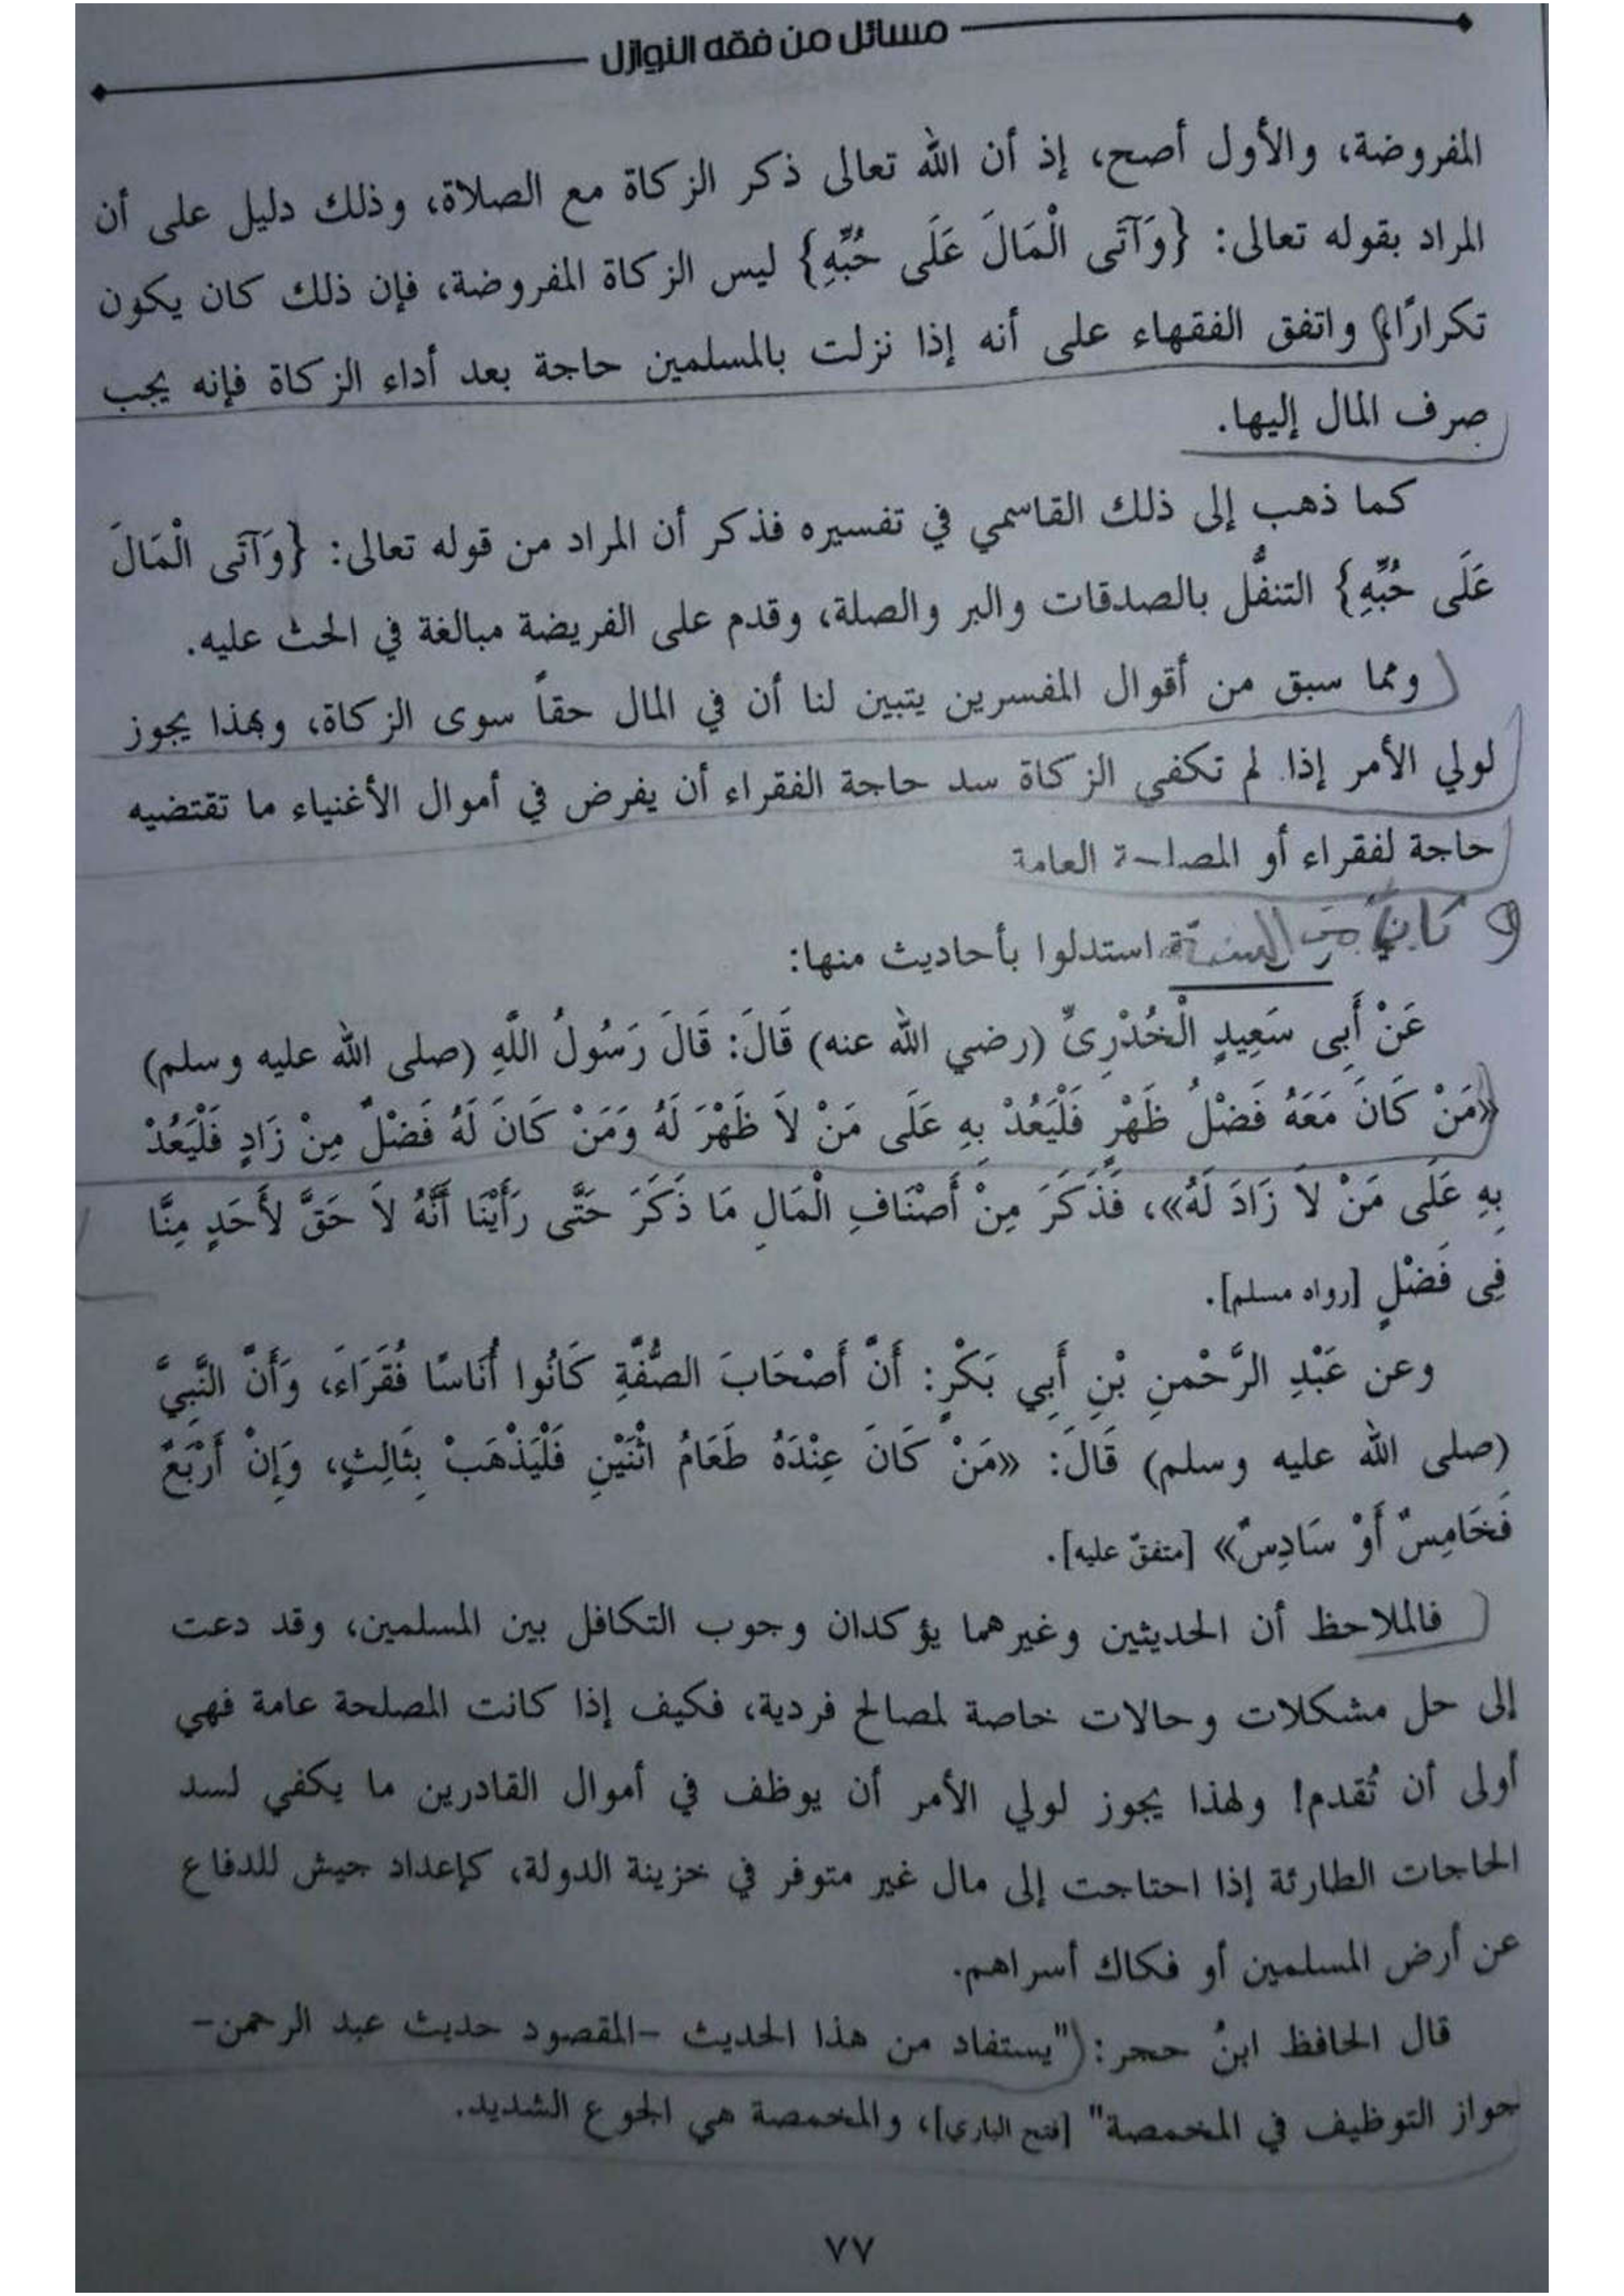 مسائل من فقه النوازل
المفروضة، والأول أصح، إذ أن الله تعالى ذكر الزكاة مع الصلاة، وذلك دليل على أن
المراد بقوله تعالى: {وَآتَى الْمَالَ عَلَى حُبِّهِ} ليس الزكاة المفروضة، فإن ذلك كان يكون
تكرارًا، واتفق الفقهاء على أنه إذا نزلت بالمسلمين حاجة بعد أداء الزكاة فإنه يجب
صرف المال إليها.
كما ذهب إلى ذلك القاسمي في تفسيره فذكر أن المراد من قوله تعالى: {وَآتَى الْمَالَ
عَلَى حُبِّهِ} التنفُّل بالصدقات والبر والصلة، وقدم على الفريضة مبالغة في الحث عليه.
ومما سبق من أقوال المفسرين يتبين لنا أن في المال حقاً سوى الزكاة، وبهذا يجوز
لولي الأمر إذا لم تكفي الزكاة سد حاجة الفقراء أن يفرض في أموال الأغنياء ما تقتضيه
حاجة لفقراء أو المصلحة العامة
من السنة استدلوا بأحاديث منها:
عَنْ أَبِى سَعِيدٍ الْخُدْرِىِّ (رضي الله عنه) قَالَ: قَالَ رَسُولُ اللَّهِ (صلى الله عليه وسلم)
«مَنْ كَانَ مَعَهُ فَضْلُ ظَهْرٍ فَلْيَعُدْ بِهِ عَلَى مَنْ لاَ ظَهْرَ لَهُ وَمَنْ كَانَ لَهُ فَضْلٌ مِنْ زَادٍ فَلْيَعُدْ
بِهِ عَلَى مَنْ لاَ زَادَ لَهُ»، فَذَكَرَ مِنْ أَصْنَافِ الْمَالِ مَا ذَكَرَ حَتَّى رَأَيْنَا أَنَّهُ لاَ حَقَّ لأَحَدٍ مِنَّا
فِى فَضْلٍ [رواه مسلم].
وعن عَبْدِ الرَّحْمنِ بْنِ أَبِي بَكْرٍ: أَنَّ أَصْحَابَ الصُّفَّةِ كَانُوا أُنَاسًا فُقَرَاءَ، وَأَنَّ النَّبِيَّ
(صلى الله عليه وسلم) قَالَ: «مَنْ كَانَ عِنْدَهُ طَعَامُ اثْنَيْنِ فَلْيَذْهَبْ بِثَالِثٍ، وَإِنْ أَرْبَعٌ
فَخَامِسٌ أَوْ سَادِسٌ» [متفقٌ عليه].
فالملاحظ أن الحديثين وغيرهما يؤكدان وجوب التكافل بين المسلمين، وقد دعت
إلى حل مشكلات وحالات خاصة لمصالح فردية، فكيف إذا كانت المصلحة عامة فهي
أولى أن تُقدم! ولهذا يجوز لولي الأمر أن يوظف في أموال القادرين ما يكفي لسد
الحاجات الطارئة إذا احتاجت إلى مال غير متوفر في خزينة الدولة، كإعداد جيش للدفاع
عن أرض المسلمين أو فكاك أسراهم.
قال الحافظ ابنُ حجر: "يستفاد من هذا الحديث –المقصود حديث عبد الرحمن–
جواز التوظيف في المخمصة" [فتح الباري]، والمخمصة هي الجوع الشديد.
٧٧